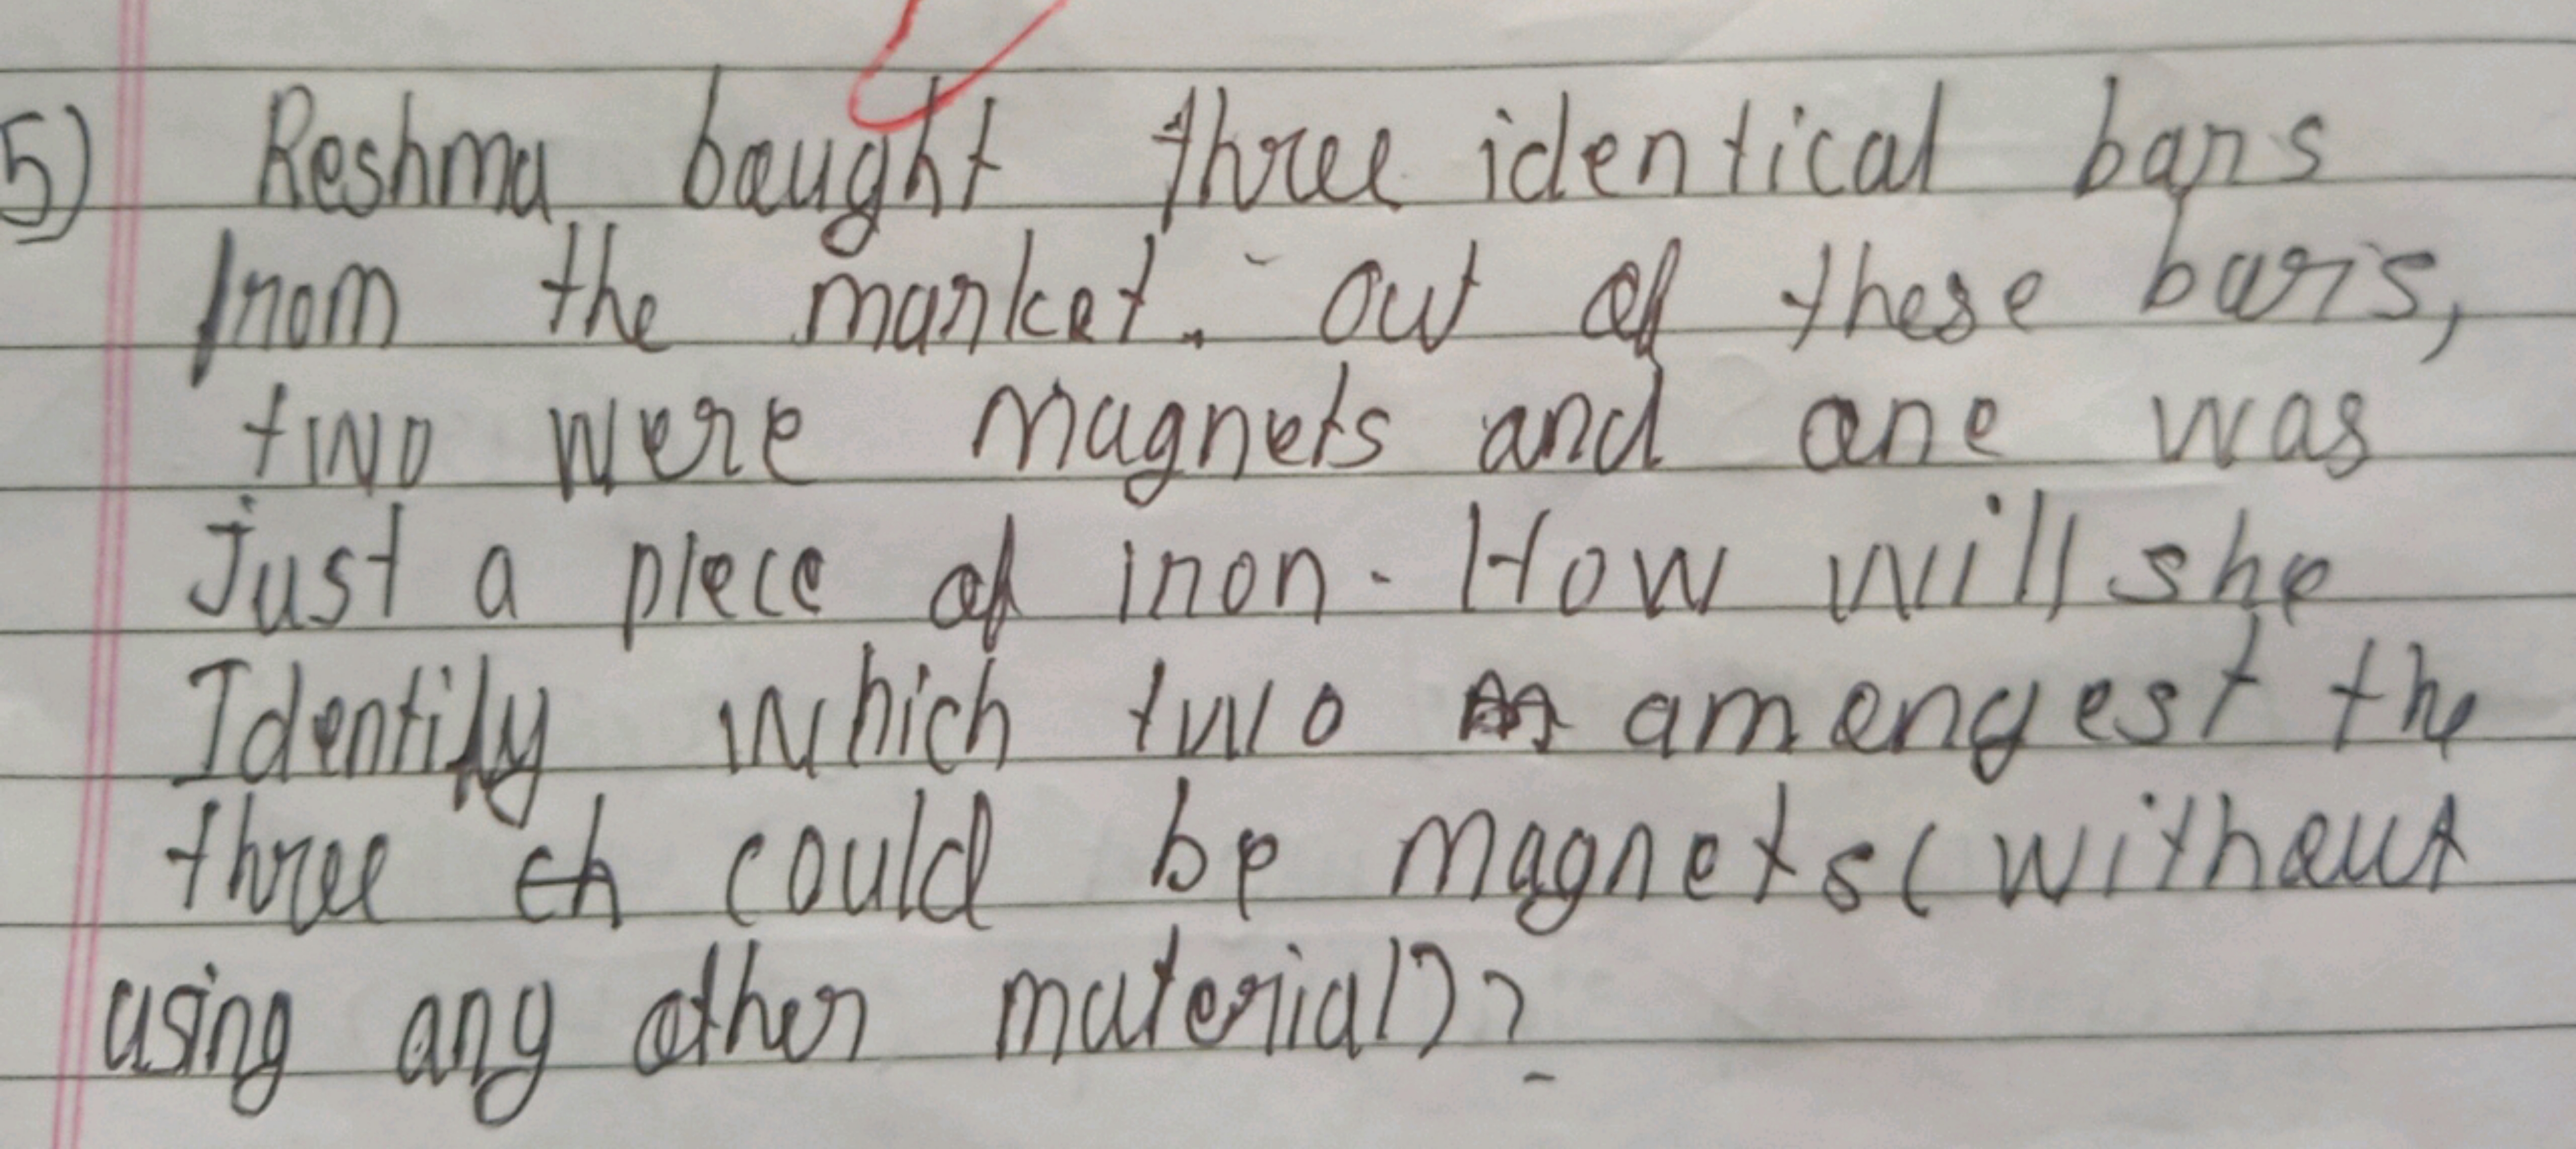 5) Reshma bought three identical bars
from the market. out of these bars,
two were magnets and one was
Just a piece of iron. How will she
Identify which two amongest the
three could be magnets (without
using any other material)?